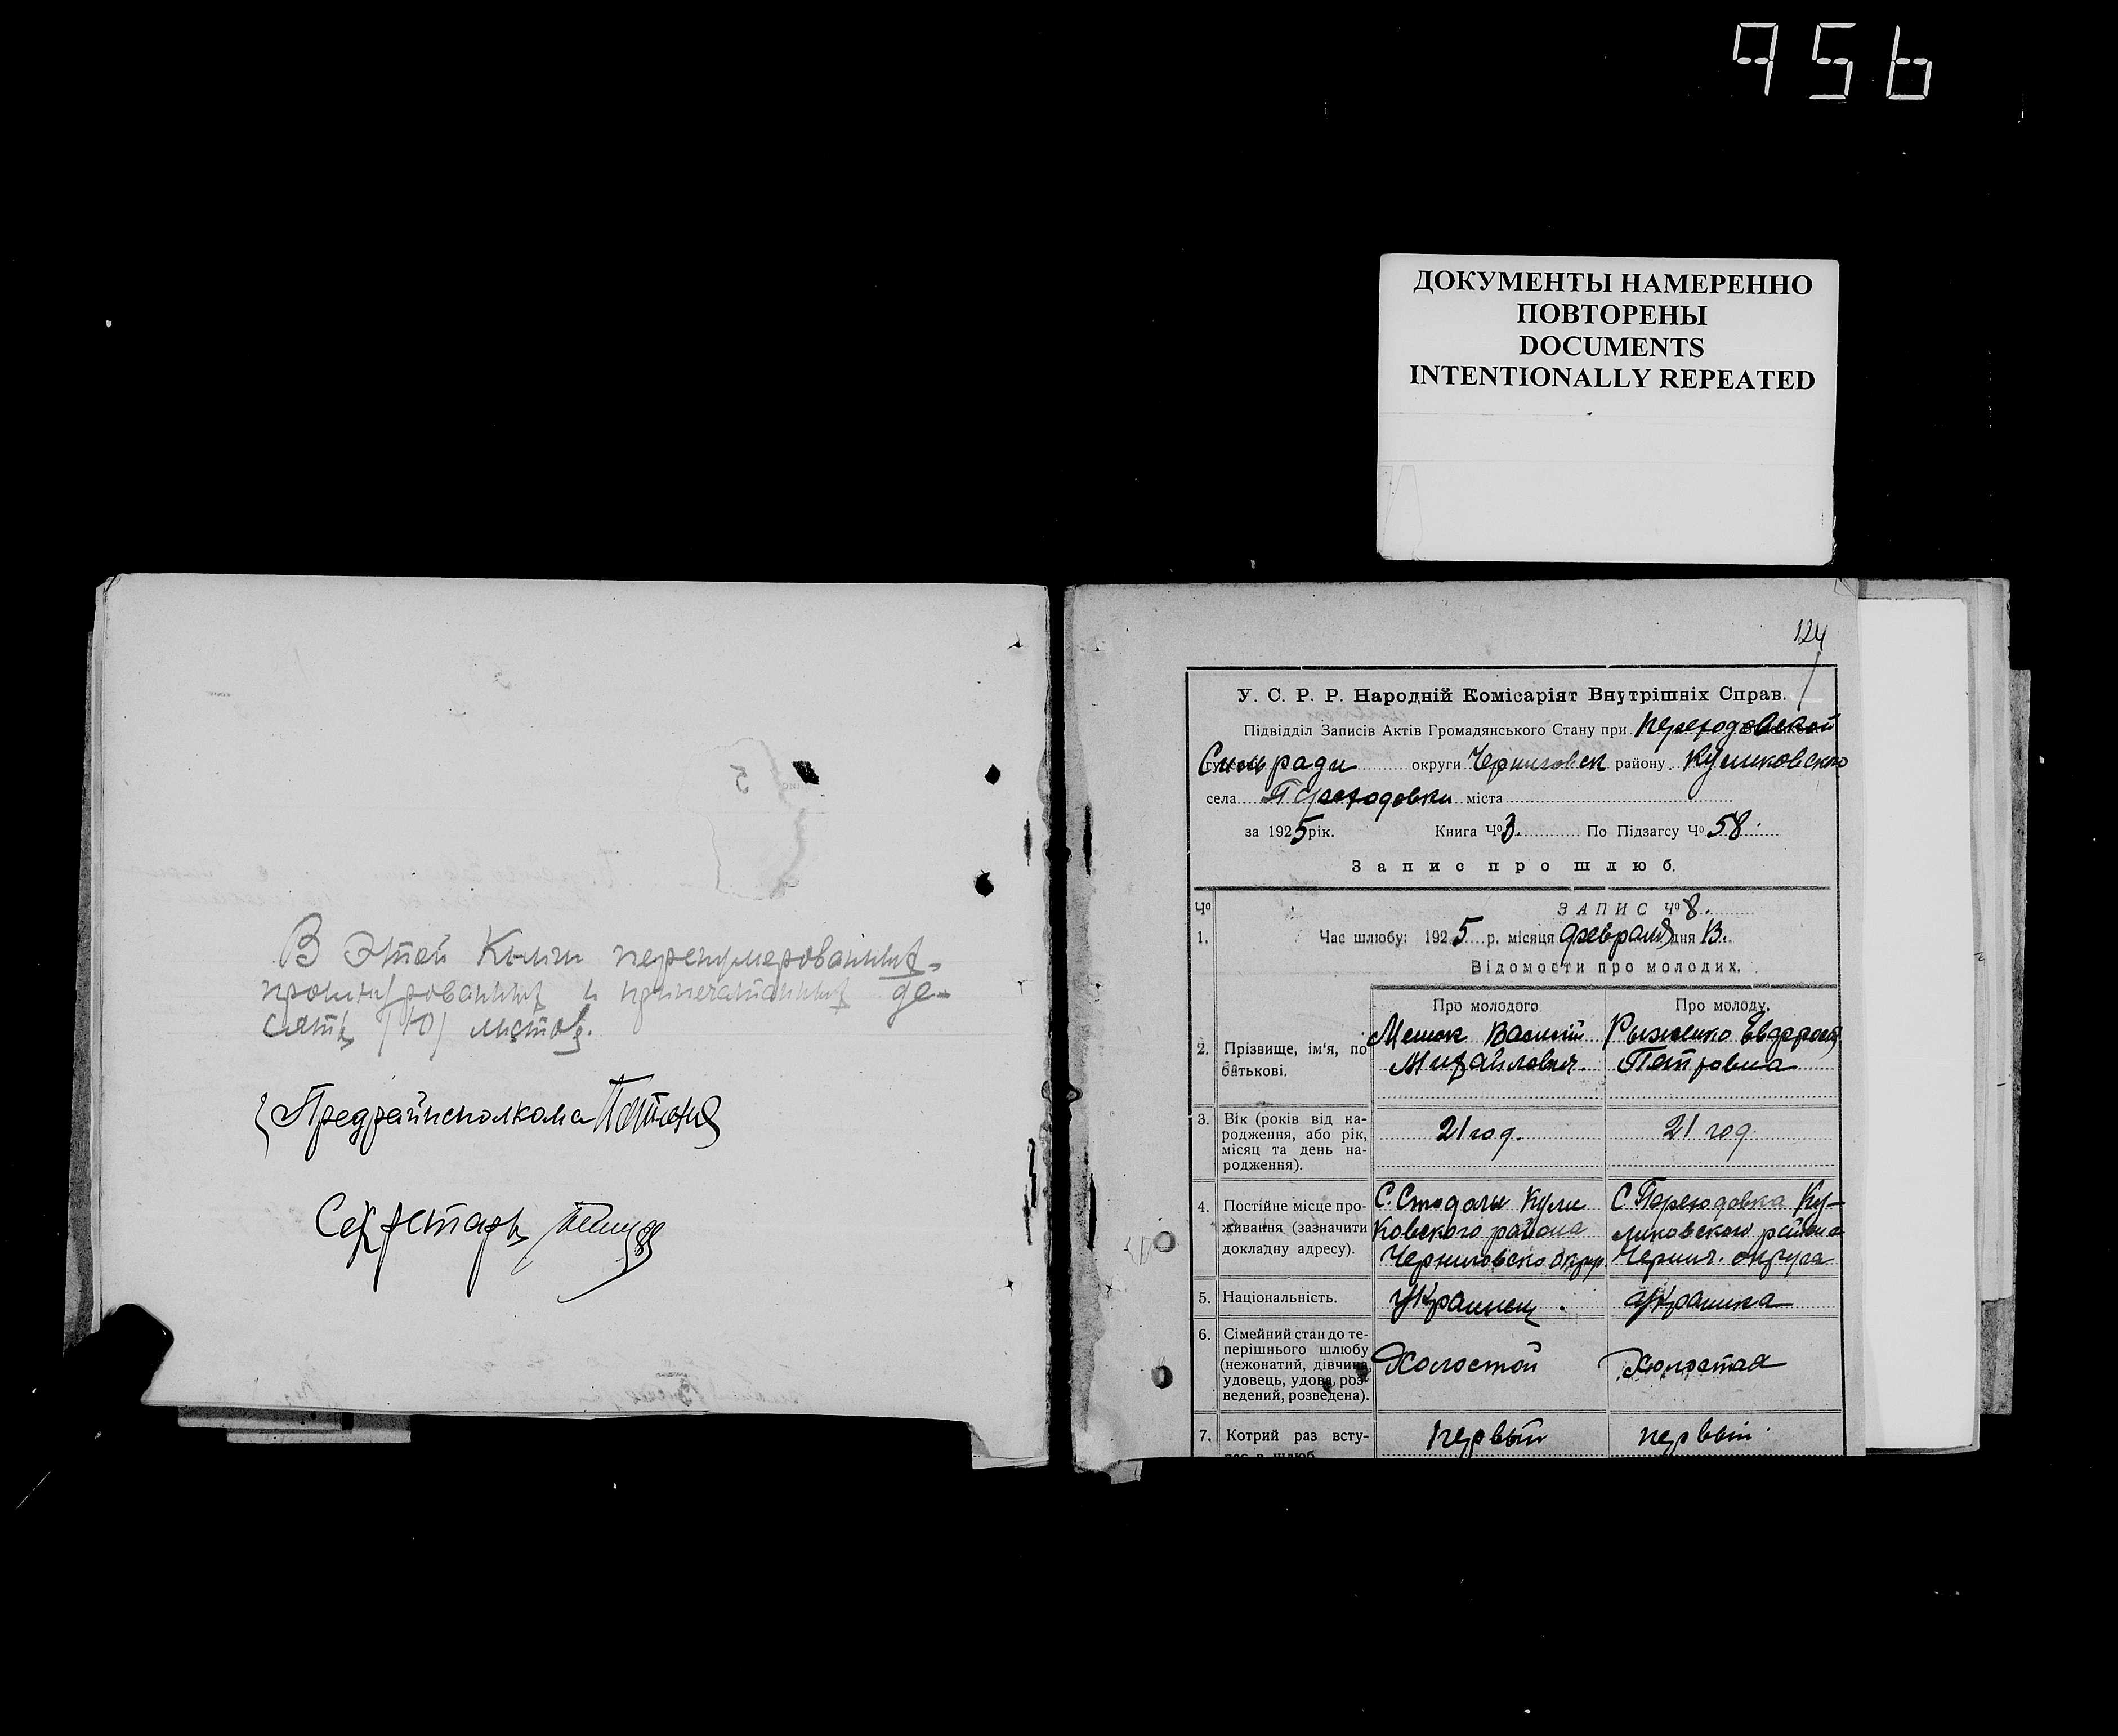 956
ДОКУМЕНТЫ НАМЕРЕННО
ПОВТОРЕНЫ
DOCUMENTS
INTENTIONALLY REPEATED
В этой Книги перенумерованных,
прошнурованных и припечатанных де-
сять /10/ листов.
Предрайисполкома
Секретарь
124
У. С. Р. Р. Народній Комісаріят Внутрішніх Справ.
Підвідділ Записів Актів Громадянського Стану при Переходовской
Сильради округи Черниговск району Куликовского
села Переходовки міста
за 1925 рік. Книга Ч⁰ 3. По Підзагсу Ч⁰ 58.
Запис про шлюб.
Ч⁰ ЗАПИС Ч⁰ 8.
1. Час шлюбу: 1925 р. місяця февраля дня 13.
Відомости про молодих.
Про молодого Про молоду.
2. Прізвище, ім'я, по батькові.
Василий Михайлович.
Рыженко Петровна
3. Вік (років від на-
родження, або рік,
місяц та день на-
родження).
21 год. 21 год.
4. Постійне місце про-
живання (зазначити
докладну адресу).
С. Стодолы Кули
ковского района
Черниговско Округ.
С. Переходовка Ку-
ликовского района
Черниг. округа
5. Національність. Украинец. Украинка
6. Сімейний стан до те-
перішнього шлюбу
(нежонатий, дівчина,
удовець, удова, роз-
ведений, розведена).
Холостой Холостая
7. Котрий раз всту-
первый первый